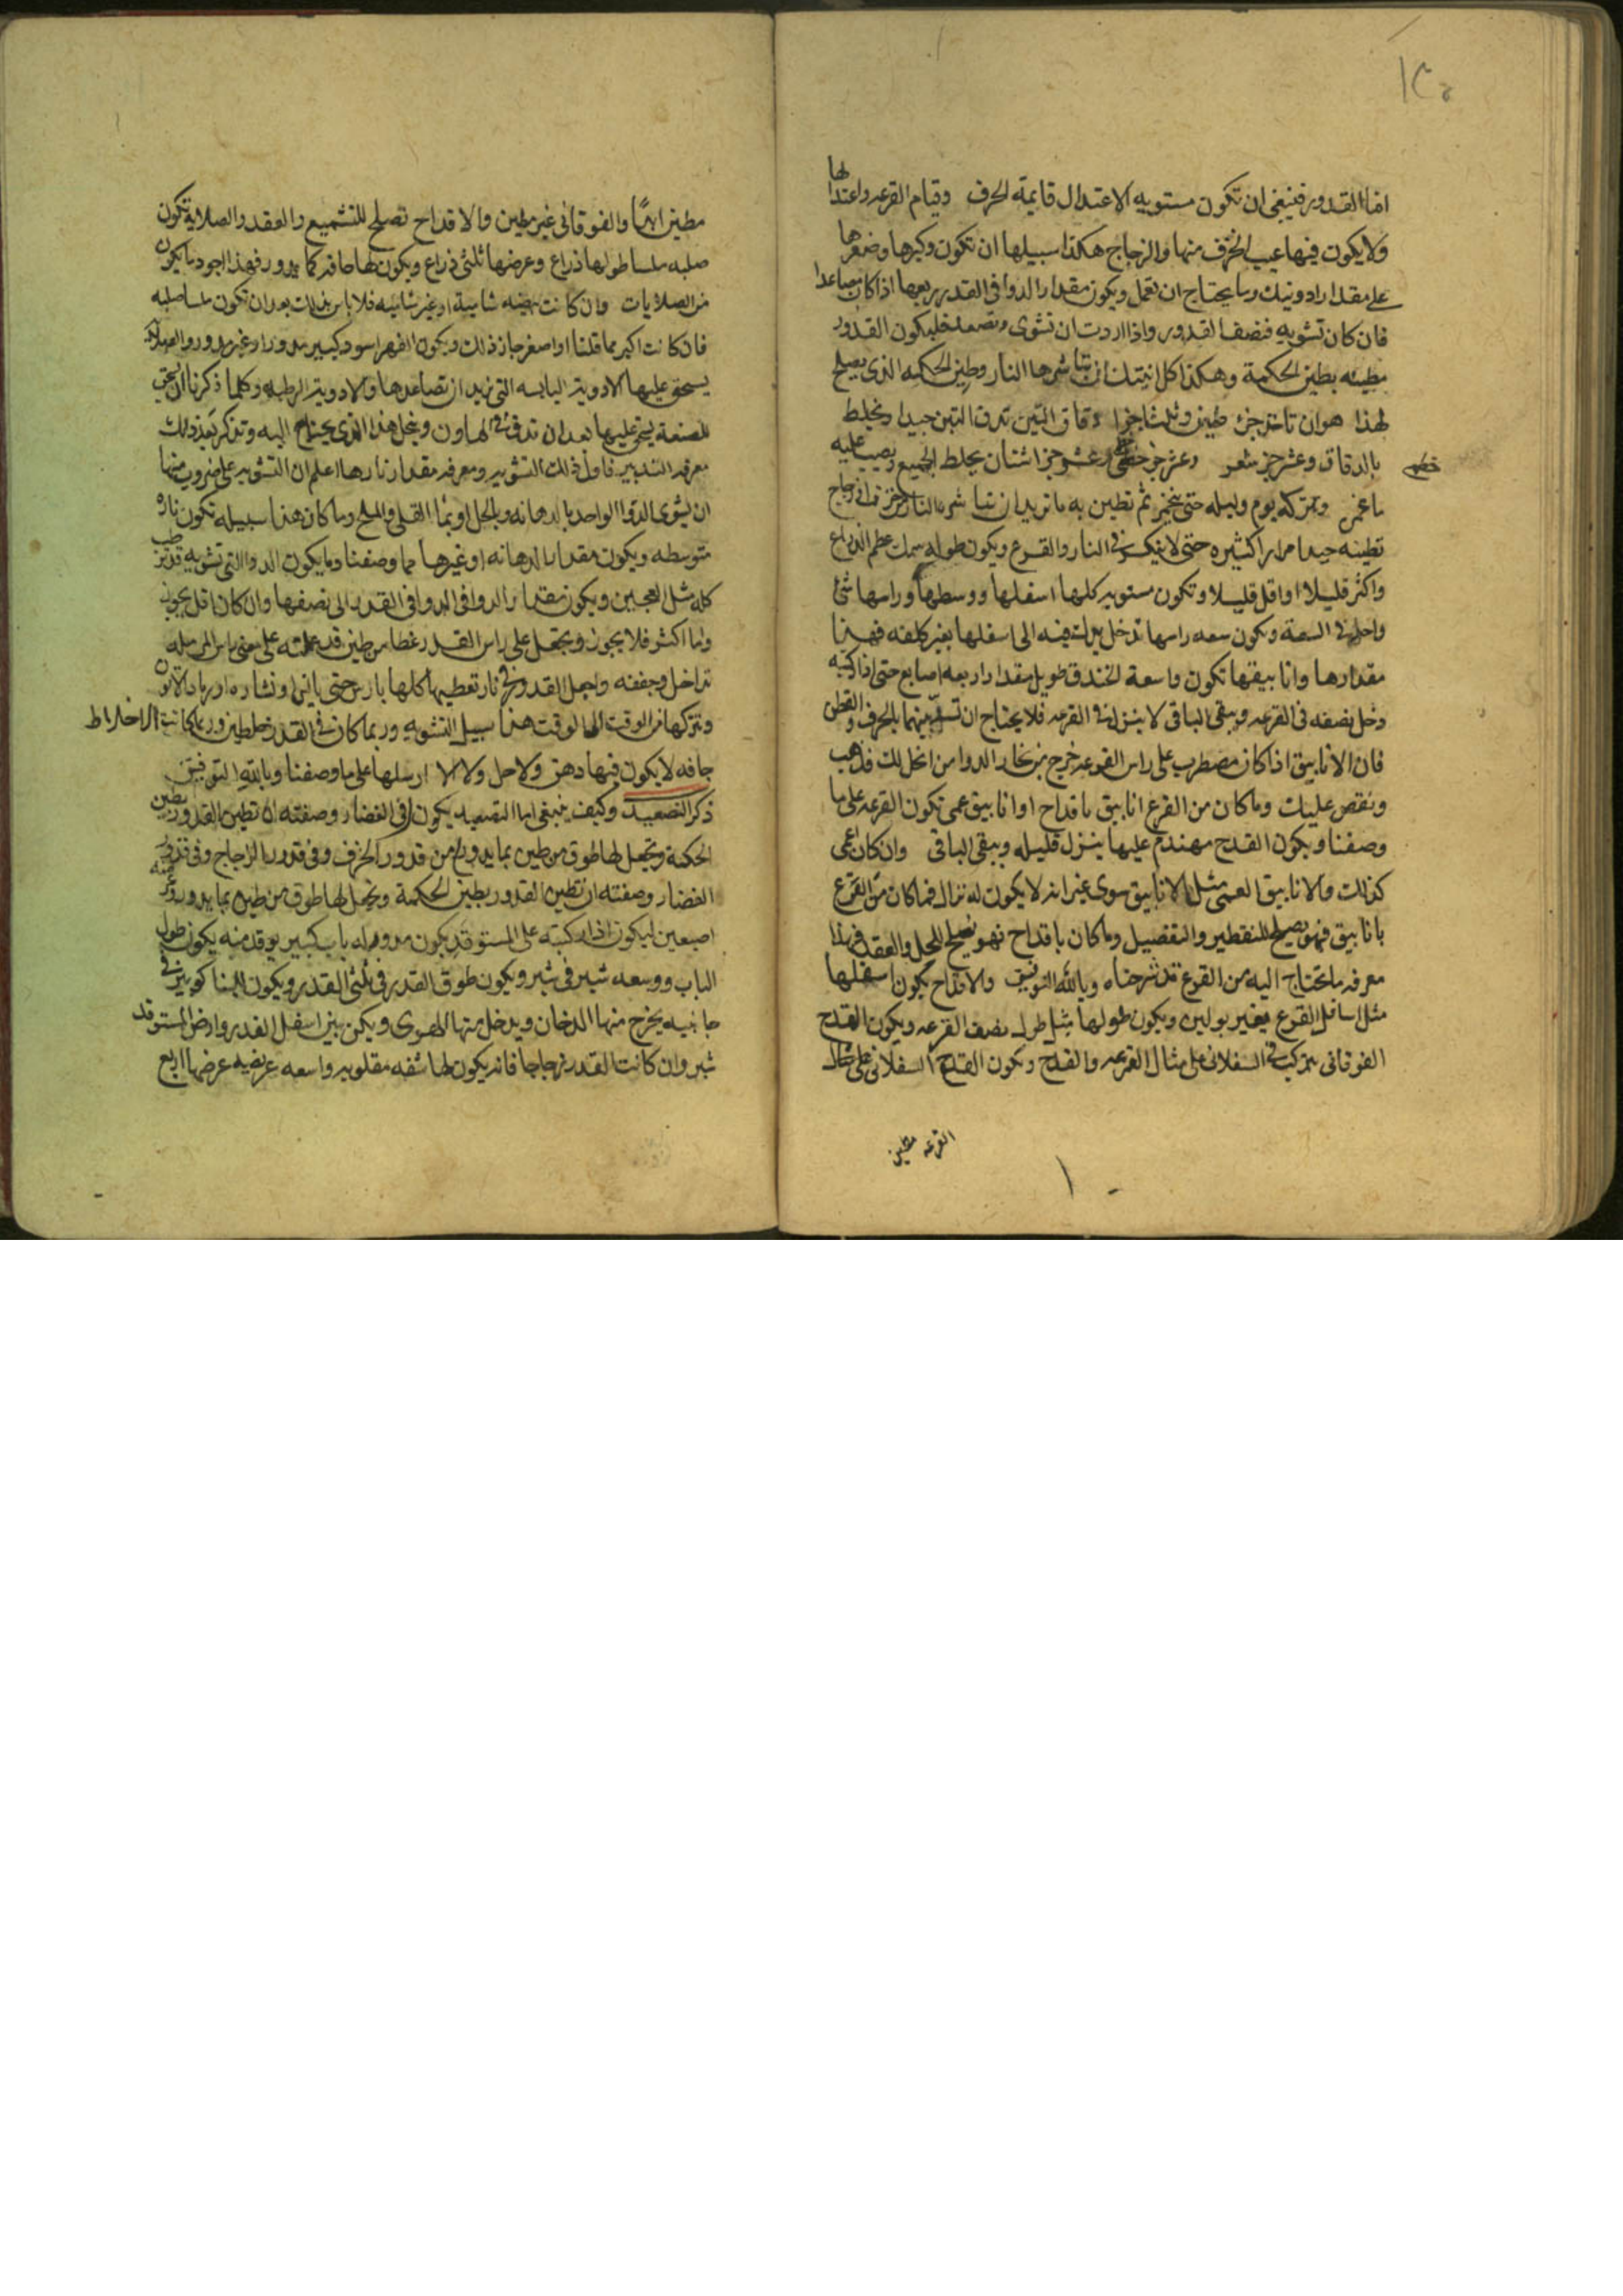 ١٢٥
اما القدور فينبغي ان تكون مستويه الاعتدال قايمة الحرف وقيام القرعه واعتدالها
ولا يكون فيها عيب الخزف منها والزجاج هكذا سبيلها ان تكون وكبرها وصغرها
على مقدار ادويتك وما يحتاج ان تعمل ويكون مقدار الدوا في القدر ربعها اذا كان مصاعدا
فان كان تشويه فنصف القدور واذا اردت ان تشوى وتصعد فليكون القدور
مطينه بطين الحكمة وهكذا كل انيتك ان تباشرها النار وطين الحكمه الذي يصلح
لهذا هو ان تاخذ جزء طين وثلث اجزا دقاق التبن تدق التبن جيدا وتخلط
بالدقاق وعشر جز شعر وعشر جز خطمى وعشر جز اشنان يخلط الجميع ويصب عليه
خطمى
ما غمره وتتركه يوم وليله حتى يختمر ثم تطين به ما تريد ان تباشره النار
تطينه جيدا مرارا كثيره حتى لا ينكسر في النار والقرع ويكون طوله سمك عظم الذراع
واكثر قليلا او اقل قليلا وتكون مستويه كلها اسفلها ووسطها وراسها شئ
واحد في السعة ويكون سعه راسها تدخل يدك فيه الى اسفلها بغير كلفه فهذا
مقدارها وانابيقها تكون واسعة الخندق طويل مقدار اربعه اصابع حتى اذا ركبته
دخل نصفه في القرعه ويبقى الباقى لا ينزل في القرعه فلا يحتاج ان تسد بينهما بالخرق والقطن
فان الانابيق اذا كان مضطرب على راس القرعه خرج من بخار الدوا من الخلل فذهب
ونقص عليك وما كان من القرع انابيق باقداح او انابيق عمى تكون القرعه على ما
وصفنا ويكون القدح مهندم عليها ينزل قليله ويبقى الباقى وان كان اعمى
كذلك والانابيق العمى مثل الانابيق سوى غير انه لا يكون له نزال فما كان من القرع
بانابيق فهو يصلح للتقطير والتفصيل وما كان باقداح فهو يصلح للحل والعقد فهذا
معرفه ما تحتاج اليه من القرع قد شرحناه وبالله التوفيق والاقداح يكون اسفلها
مثل اسافل القرع بغير بولين ويكون طولها مثل طول نصف القرعه ويكون القدح
الفوقانى يتركب في السفلانى على مثال القرعه والقدح ويكون القدح السفلانى على مثال
القرعه مطين
مطين ابدًا والفوقانى غير مطين والاقداح تصلح للتشميع والعقد والصلاية تكون
صلبه ملسا طولها ذراع وعرضها ثلثى ذراع ويكون لها حافه كما يدور فهذا اجود ما يكون
من الصلايات وان كانت شاميه او غير شاميه فلا باس بذلك بعد ان تكون ملسا صلبه
فان كانت اكبر مما قلنا او اصغر جاز ذلك ويكون الفهر اسود كبير مدور او غير مدور والصلاية
يسحق عليها الادوية اليابسه التي نريد ان تصاعدها والادوية الرطبه وكلما ذكرنا ان يسحق
للصنعة يسحق عليها بعد ان تدق في الهاون وينخل هذا الذي يحتاج اليه وتذكر بعد ذلك
معرفه التدبير فاول ذلك التشويه ومعرفه مقدار نارها اعلم ان التشويه على ضروب منها
ان يشوى الدوا الواحد بالدهانه وبالخل او بما القلى والملح وما كان هذا سبيله تكون ناره
متوسطه ويكون مقدار الدهانه او غيرها مما وصفنا وما يكون الدوا التي تشويه قد ترطب
كله مثل العجين ويكون مقدار الدوا في القدر الى نصفها وان كان اقل يجوز
واما اكثر فلا يجوز ويجعل على راس القدر غطا من طين قد عملته على
تداخل وجففته واجعل القدور في نار تغطيها كلها او نشاره او رماد الاتون
وتتركها من الوقت الى الوقت هذا سبيل التشويه وربما كان في القدر خلطين وربما كانت الاخلاط
جافه لا يكون فيها دهن ولا خل ولا ارسلها على ما وصفنا وبالله التوفيق
ذكر التصعيد وكيف ينبغى اما التصعيد يكون في الغضار وصفته ان تطين القدور بطين
الحكمة وتجعل لها طوق من طين بما يدور من قدور الخزف وفى قدور الزجاج وفى قدور
الغضار وصفته ان تطين القدور بطين الحكمة وتجعل لها طوق من طين بما يدور عرضه
اصبعين ليكون اذا ركبته على المستوقد يكون مدور له باب كبير يوقد منه يكون طول
الباب ووسعه شبر في شبر ويكون طوق القدر في ثلثى القدر ويكون للبنا كوتين في
جانبيه يخرج منها الدخان ويدخل منها الهوى ويكن بين اسفل القدر وارض المستوقد
شبر وان كانت القدر زجاجا فانه يكون لها شفه مقلوبه واسعه عريضه عرضها اربع